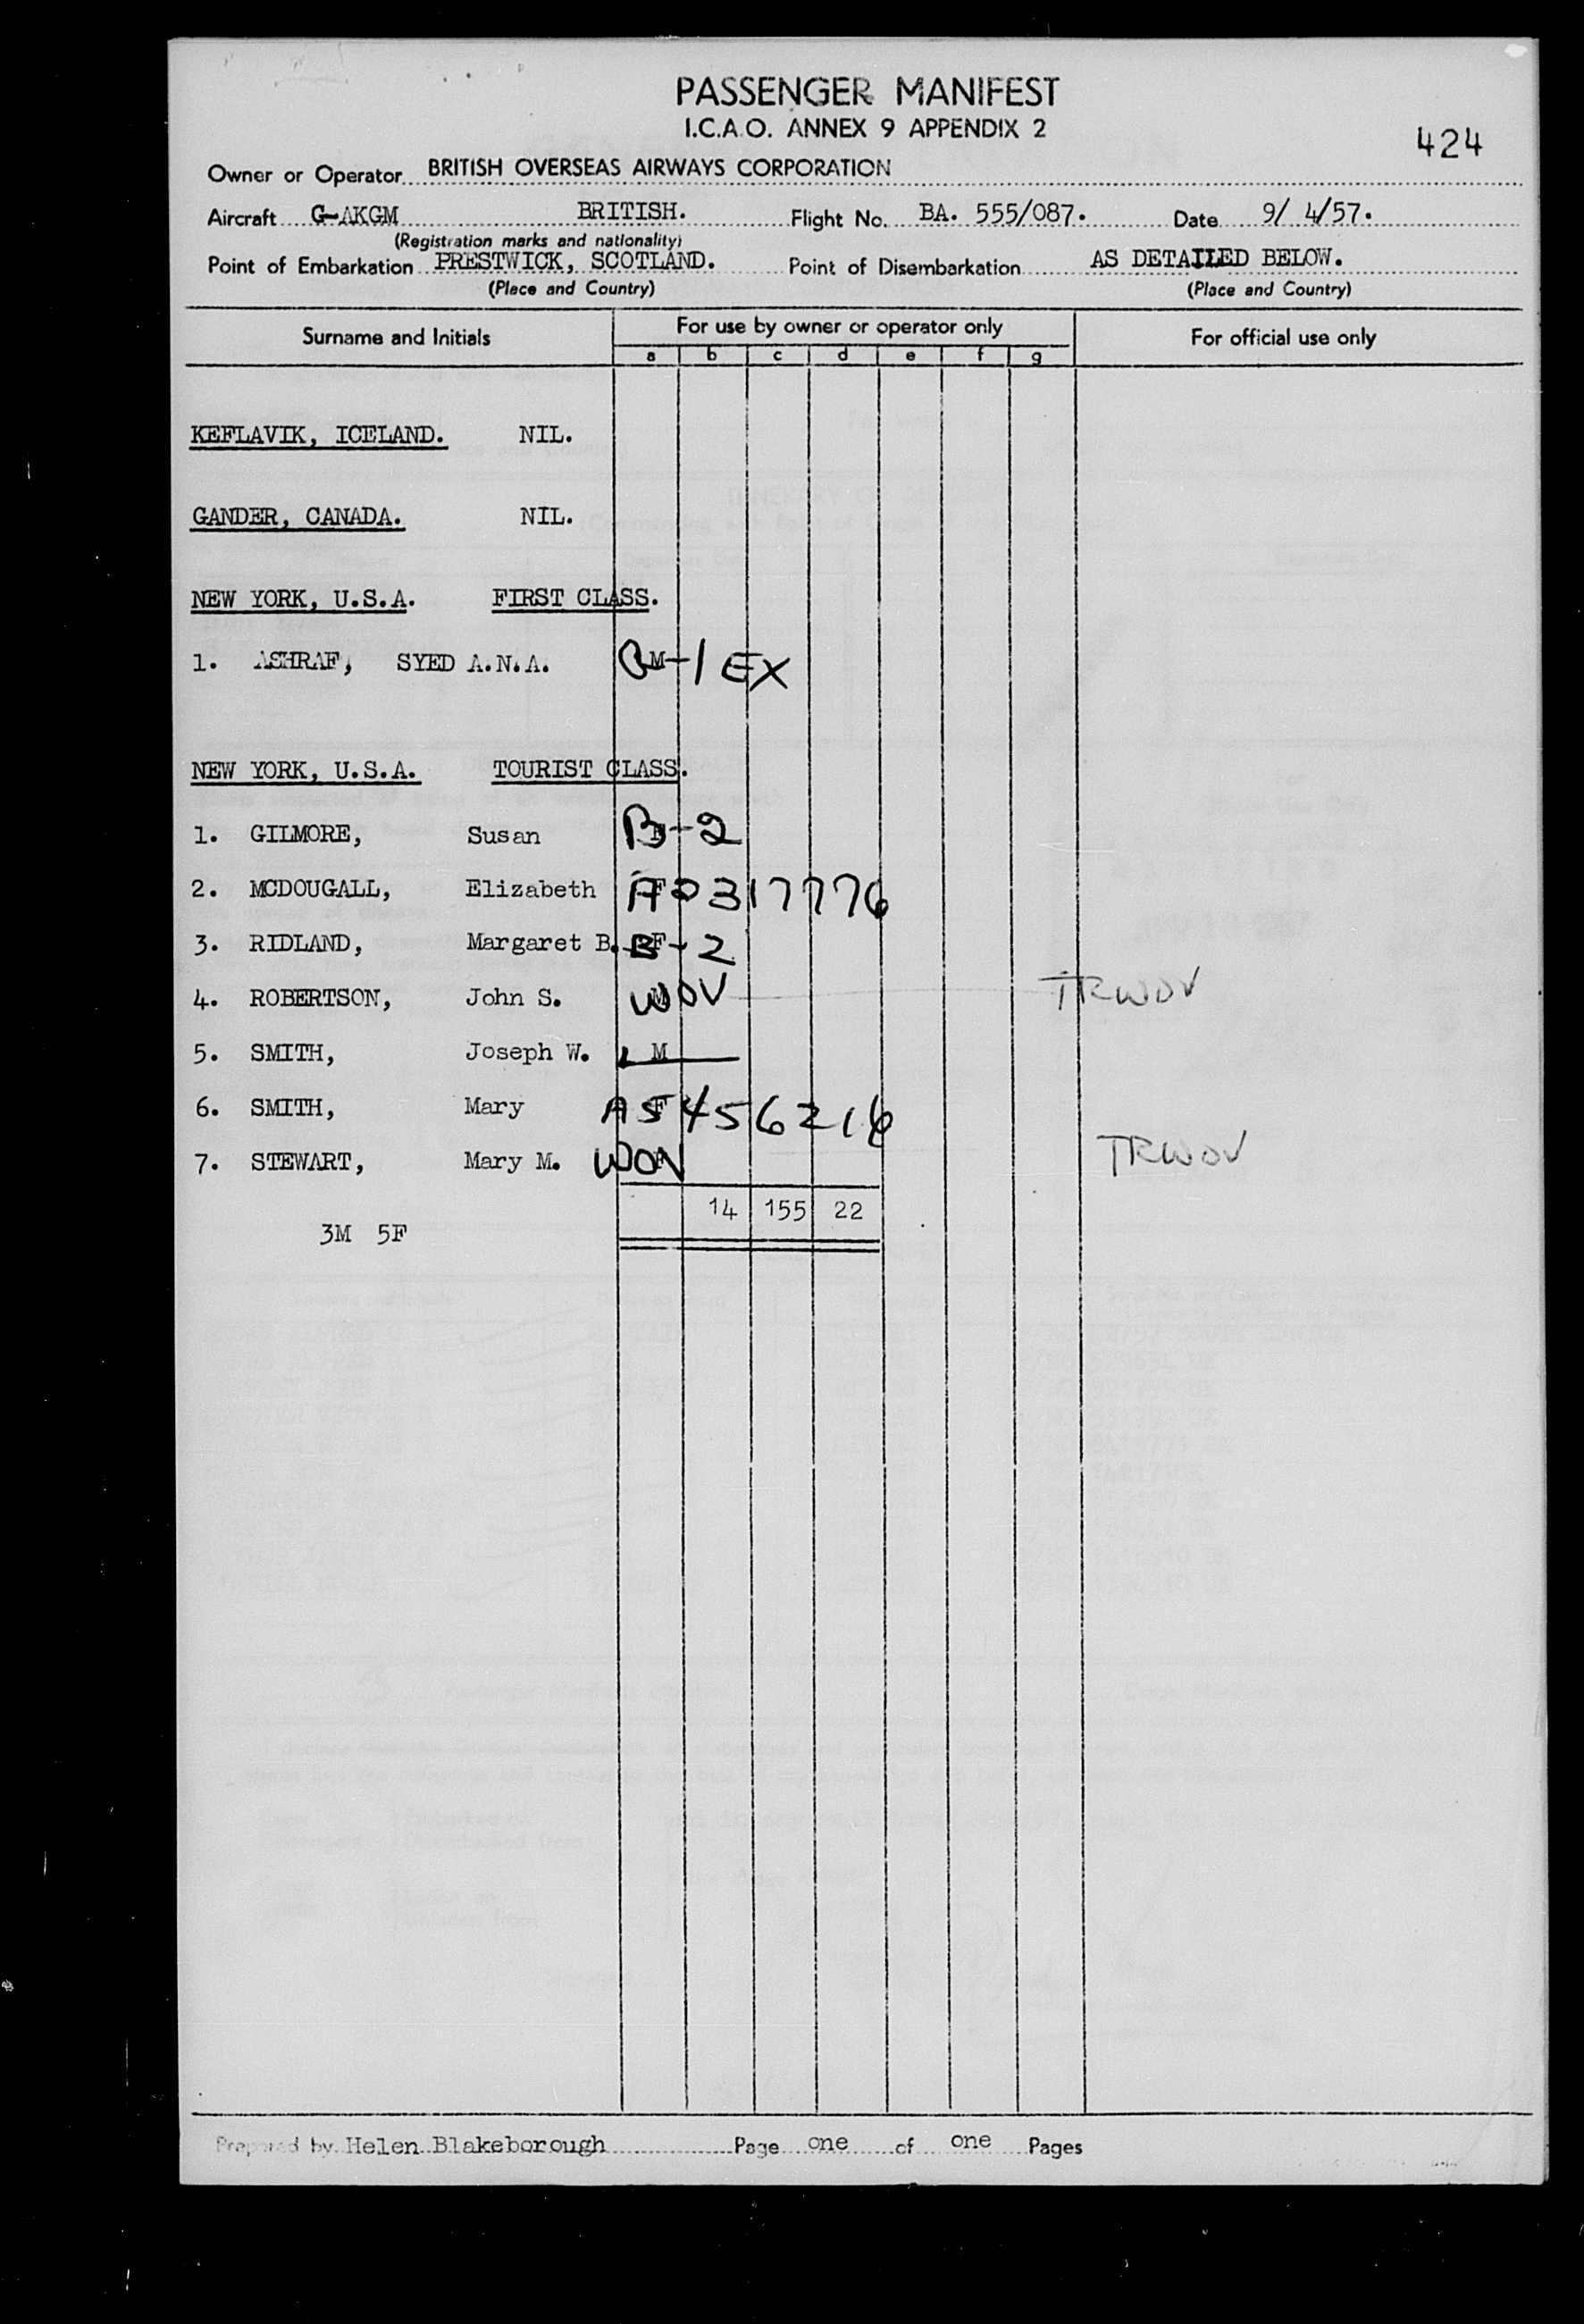 PASSENGER MANIFEST
I.C.A.O. ANNEX 9 APPENDIX 2
424
Owner or Operator BRITISH OVERSEAS AIRWAYS CORPORATION
Aircraft G-AKGM BRITISH. Flight No. BA. 555/087. Date 9/ 4/57.
(Registration marks and nationality)
Point of Embarkation PRESTWICK, SCOTLAND. Point of Disembarkation AS DETAILED BELOW.
(Place and Country) (Place and Country)
Surname and Initials For use by owner or operator only For official use only
a b c d e f g
KEFLAVIK, ICELAND. NIL.
GANDER, CANADA. NIL.
NEW YORK, U.S.A. FIRST CLASS.
1. ASHRAF, SYED A.N.A. M -1 EX
NEW YORK, U.S.A. TOURIST CLASS.
1. GILMORE, Susan B-2
2. MCDOUGALL, Elizabeth F 317776
3. RIDLAND, Margaret B. F B-2
4. ROBERTSON, John S. M WOV TRWOV
5. SMITH, Joseph W. M
6. SMITH, Mary F A5456216
7. STEWART, Mary M. F WOV TRWOV
14 155 22
3M 5F
Prepared by Helen Blakeborough Page one of one Pages